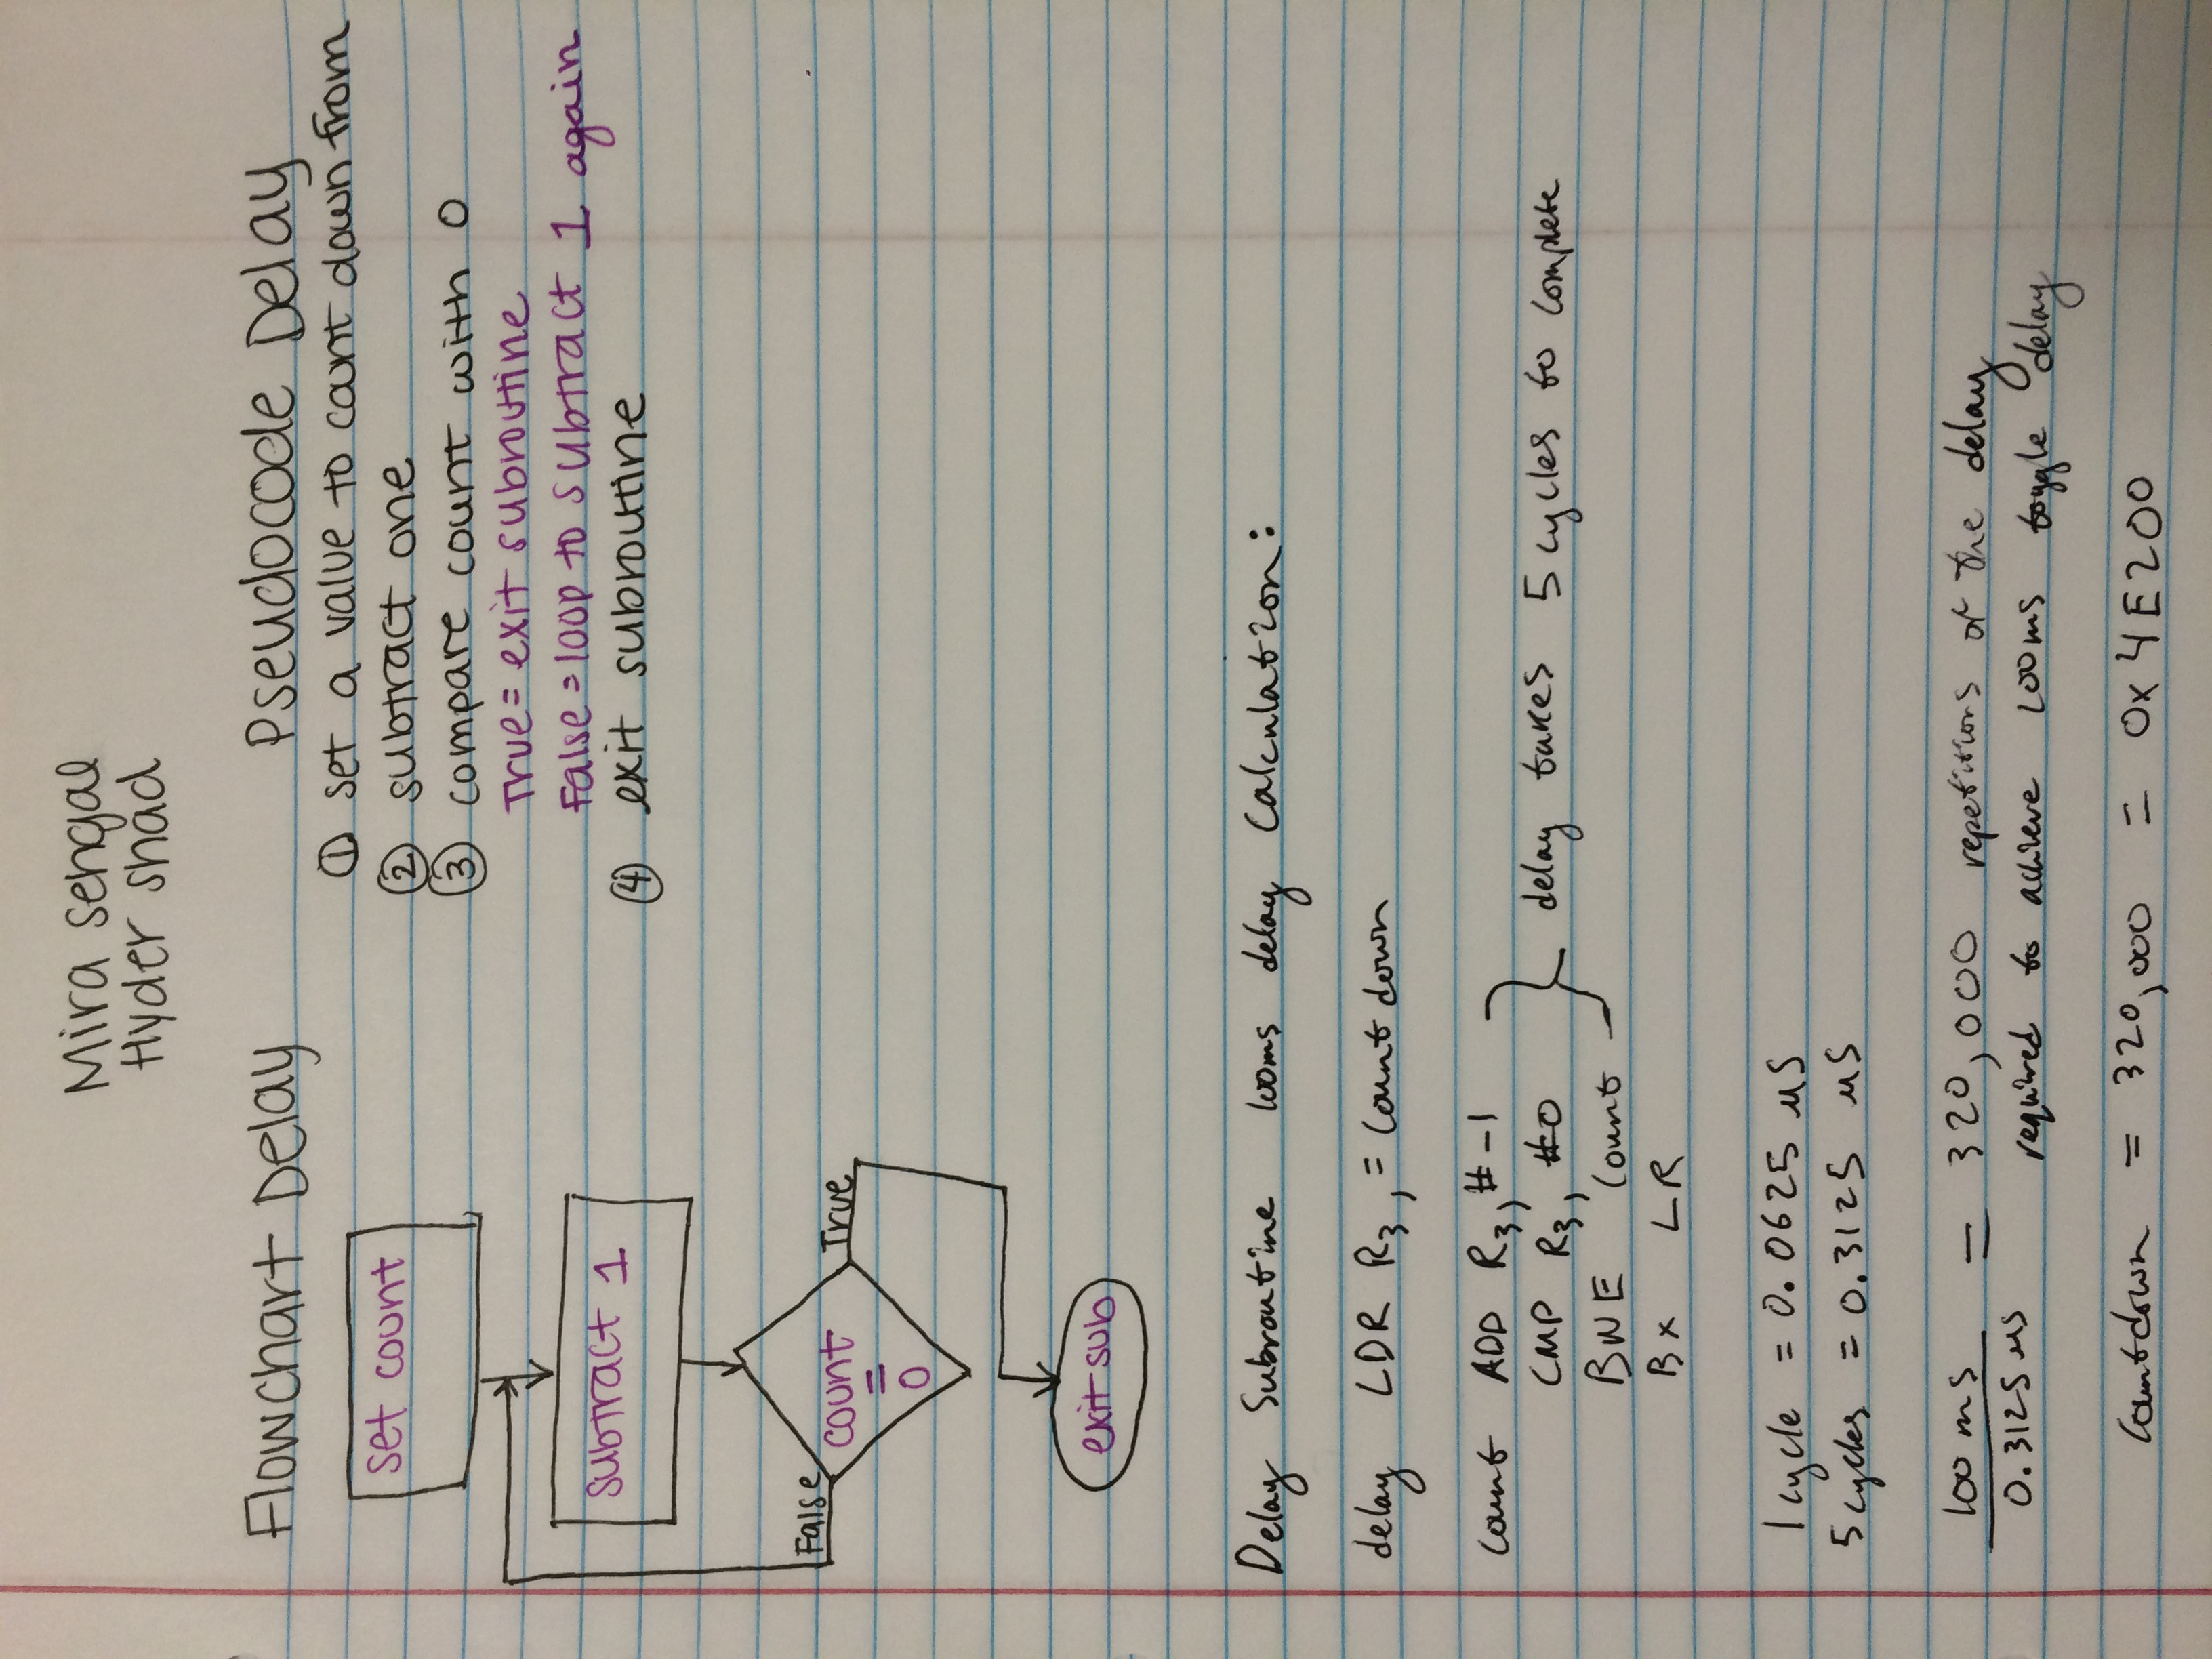 Mira sengal
Hyder shad
Flowchart Delay
set count
subtract 1
False
count
=
0
True
exit sub
Pseudocode Delay
① set a value to count down from
② subtract one
③ compare count with 0
True = exit subroutine
False = loop to subtract 1 again
④ exit subroutine
Delay Subroutine 100ms delay Calculation:
delay LDR R3, = countdown
count ADD R3, #-1
CMP R3, #0
BNE count
BX LR
delay takes 5 cycles to complete
1 cycle = 0.0625 µS
5 cycles = 0.3125 µS
100 ms
0.3125 µs
= 320,000 repetitions of the delay
required to achieve 100ms toggle delay
countdown = 320,000 = 0x4E200